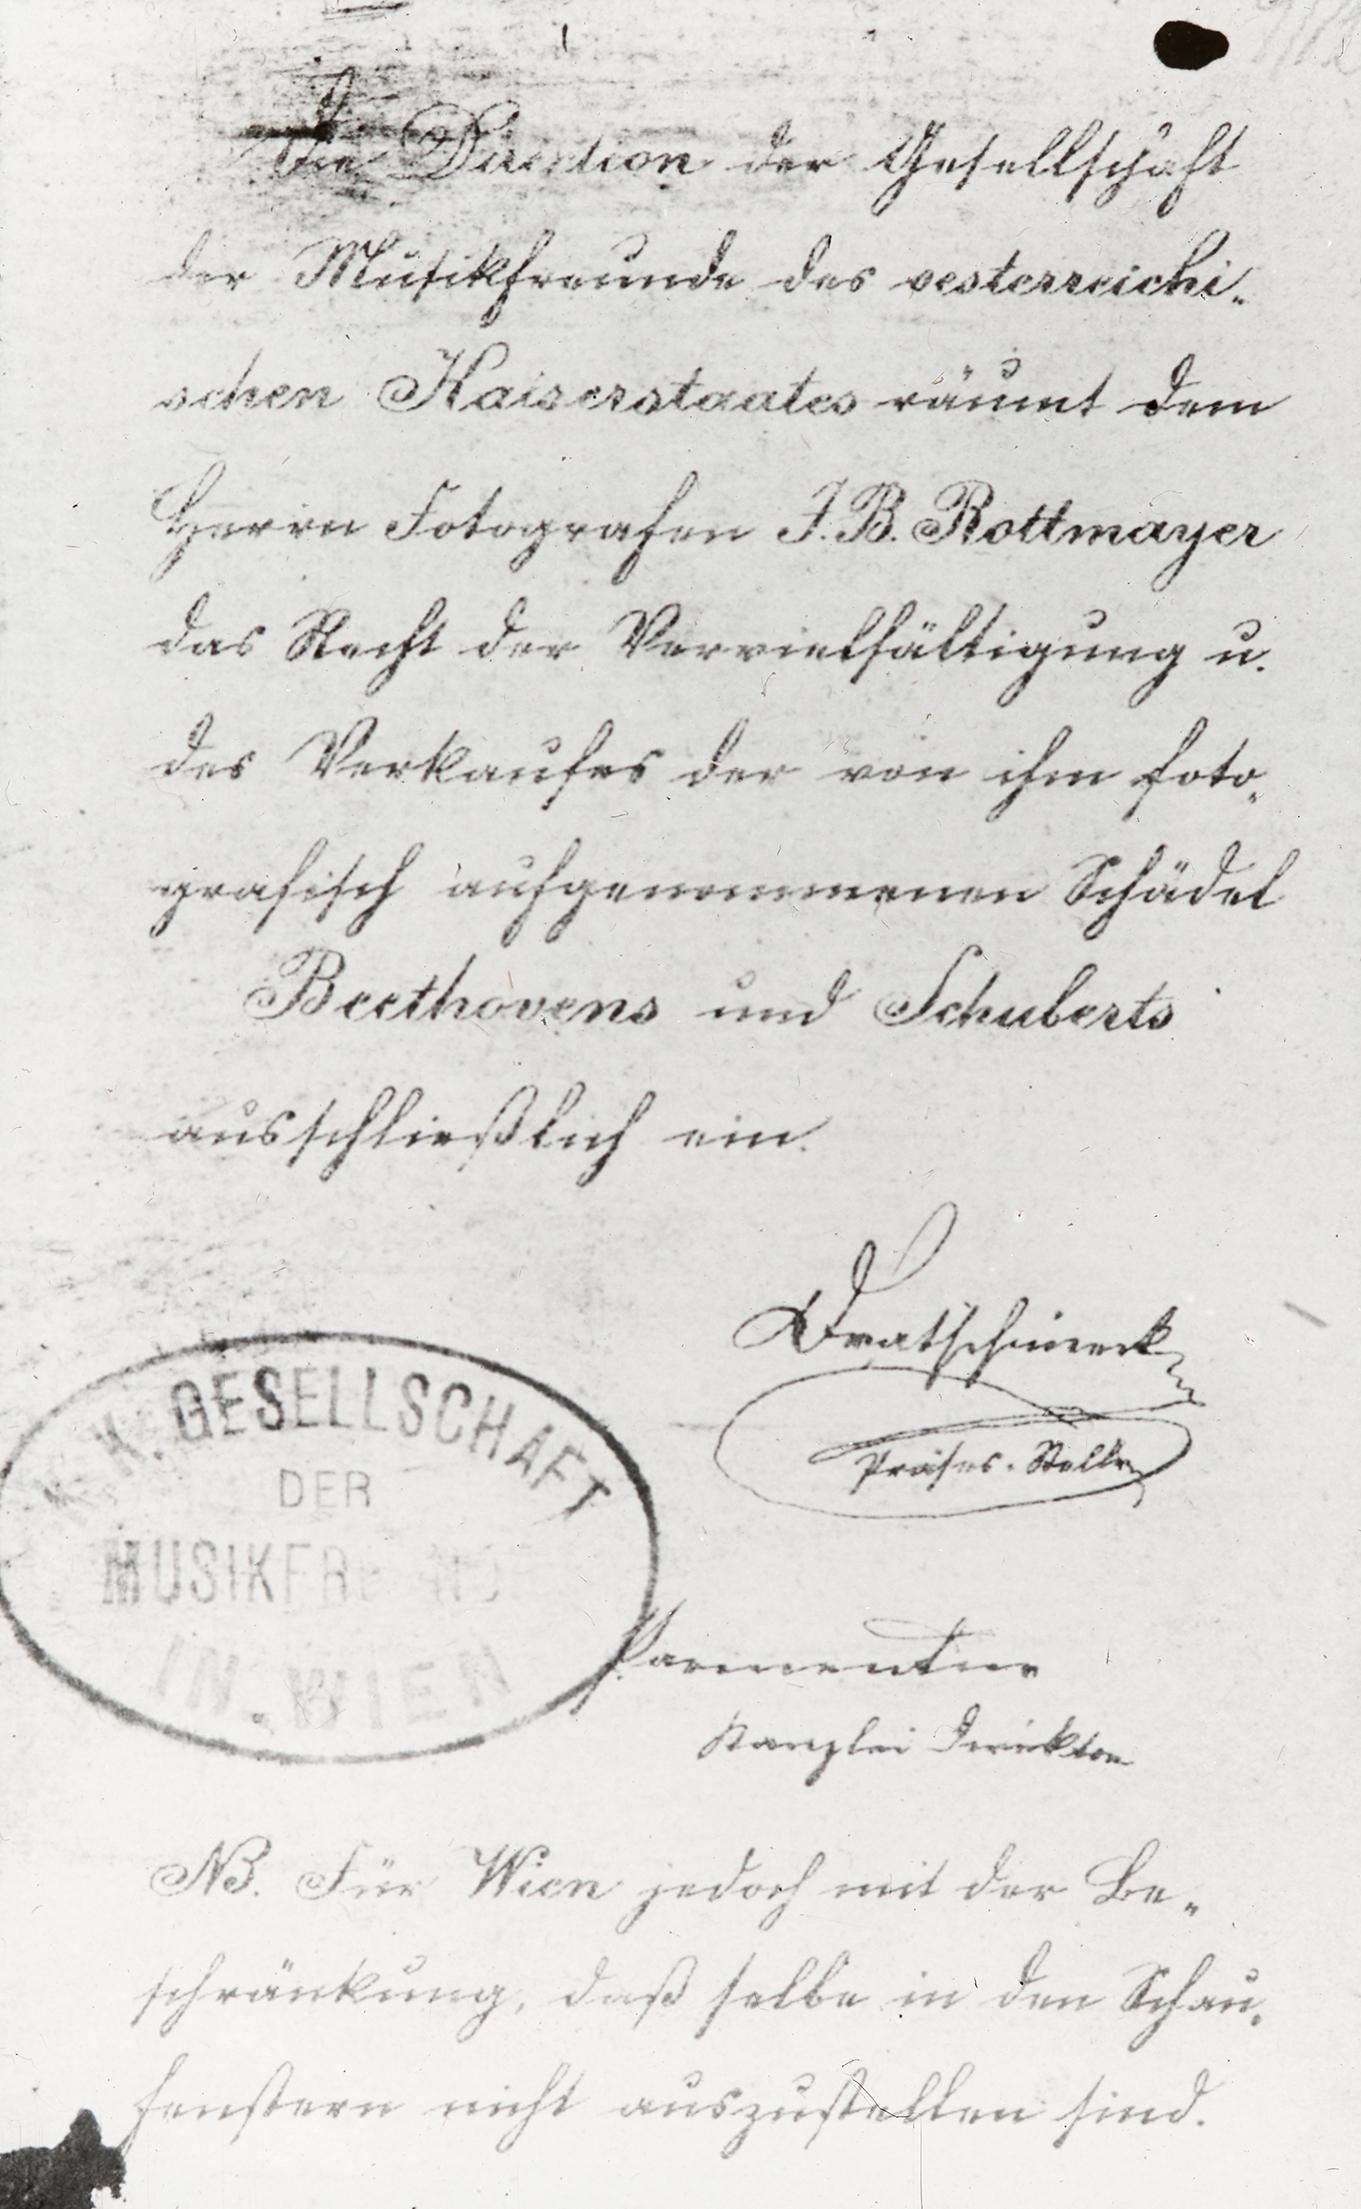 Die Direction der Gesellschaft
der Musikfreunde des oesterreichi„
schen Kaiserstaates räumt dem
Herrn Fotografen J. B. Rottmayer
das Recht der Vervielfältigung u.
des Verkaufes der von ihm foto„
grafisch aufgenommenen Schädel
Beethovens und Schuberts
ausschließlich ein.
Präses-Stellv
K. K. GESELLSCHAFT
DER
MUSIKFREUNDE
IN WIEN
Parmentier
Kanzlei Direktor
NB. Für Wien jedoch mit der Be„
schränkung, daß selbe in den Schau„
fenstern nicht auszustellen sind.